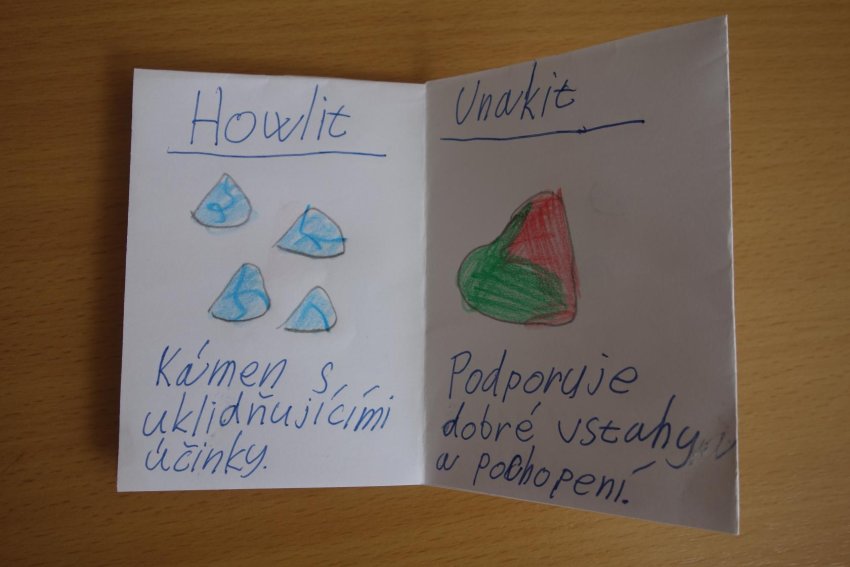 Howlit
Kámen s
uklidňujícími
účinky.
Unakit
Podporuje
dobré vstahy
a pochopení.